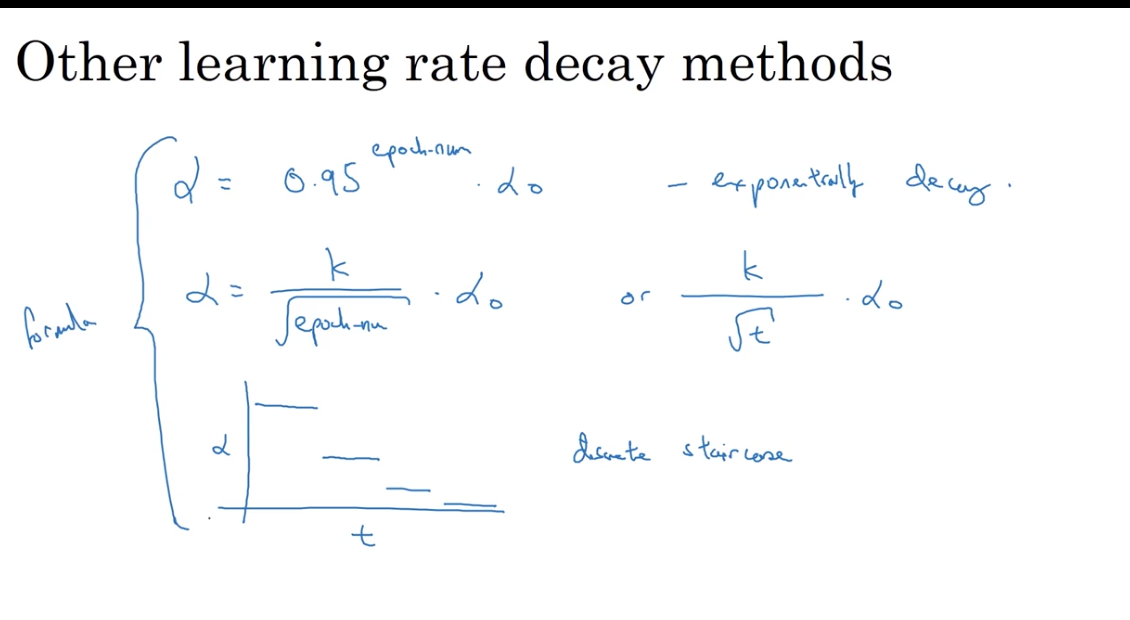 Other learning rate decay methods
α = 0.95^epoch-num · α₀ - exponentially decay.
formula
α = k/√epoch-num · α₀ or k/√t · α₀
α
discrete staircase
t